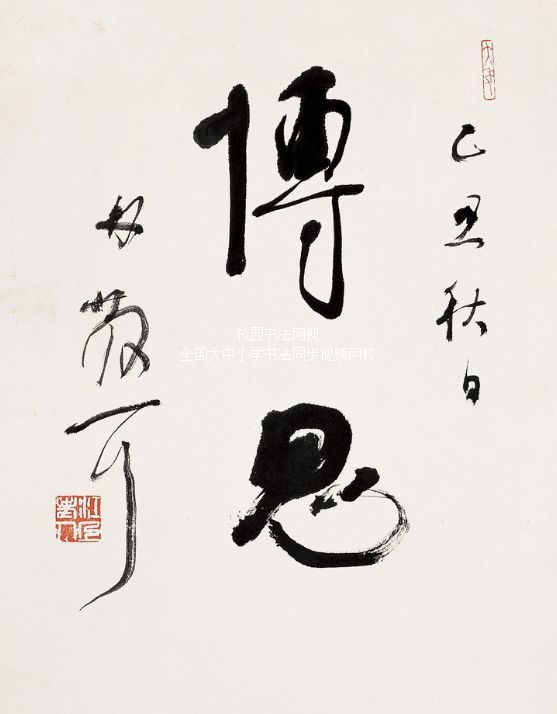 乙丑秋日
博思
林散耳
校园书法网视
全国大中小学书法同步视频网校